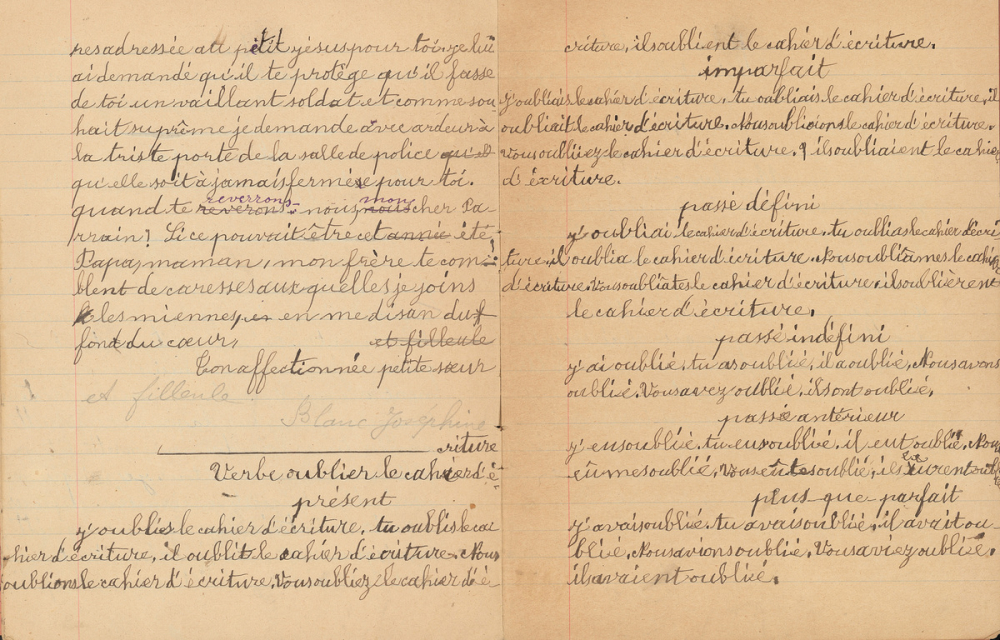 res adressée au petit jésus pour toi, je lui
ai demandé qu'il te protège qu'il fasse
de toi un vaillant soldat et comme sou
hait suprême je demande avec ardeur à
la triste porte de la salle de police qu'el
qu'elle soit à jamais fermée pour toi.
quand te reverons reverrons-nous nous mon cher Pa-
rrain? Si ce pouvait être cet année été!
Papa, maman, mon frère te com-
blent de caresses aux quelles je joins
les miennes, en me disan du
fond du cœur, et filleule
Ton affectionnée petite sœur
et filleule
Blanc Joséphine
criture
Verbe oublier le cahier d'é
présent
j'oublis le cahier d'écriture, tu oublis le ca
hier d'écriture, il oublit le cahier d'écriture. Nous
oublions le cahier d'écriture, Vous oubliez le cahier d'é
criture, ils oublient le cahier d'écriture.
imparfait
j'oubliais le cahier d'écriture, tu oubliais le cahier d'écriture, il
oubliait le cahier d'écriture. Nous oublions le cahier d'écriture.
Vous oubliiez le cahier d'écriture. ils oubliaient le cahier
d'écriture.
passé défini
j'oubliai le cahier d'écriture. tu oublias le cahier d'écri
ture, il oublia le cahier d'écriture. Nous oubliâmes le cahier
d'écriture. Vous oubliâtes le cahier d'écriture. ils oublièrent
le cahier d'écriture.
passé indéfini
j'ai oublié, tu as oublié, il a oublié, Nous avons
oublié. Vous avez oublié, ils ont oublié.
passé antérieur
j'eus oublié, tu eus oublié, il eut oublié. Nous
eûmes oublié, Vous eûtes oublié, ils eurent oublié
plus-que-parfait
j'avais oublié. tu avais oublié, il avait ou
blié. Nous avions oublié, Vous aviez oublié.
ils avaient oublié.